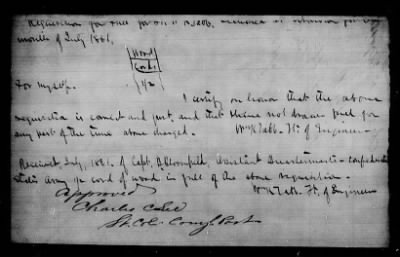 Requisition for fuel for
month of July 1861,
Wood
Cords
For myself.
I certify on honor that the above
requisition is correct and just, and that I have not drawn fuel for
any part of the time above charged. Wm K Tabb. Lt. of Engineers
Received, July, 1861, of Capt. Bloomfield, Assistant Quartermaster Confederate
States Army cord of wood in full of the above requisition.
W K Tabb. Lt. of Engineers
Approved
Charles
Lt. Col. Comg. Post